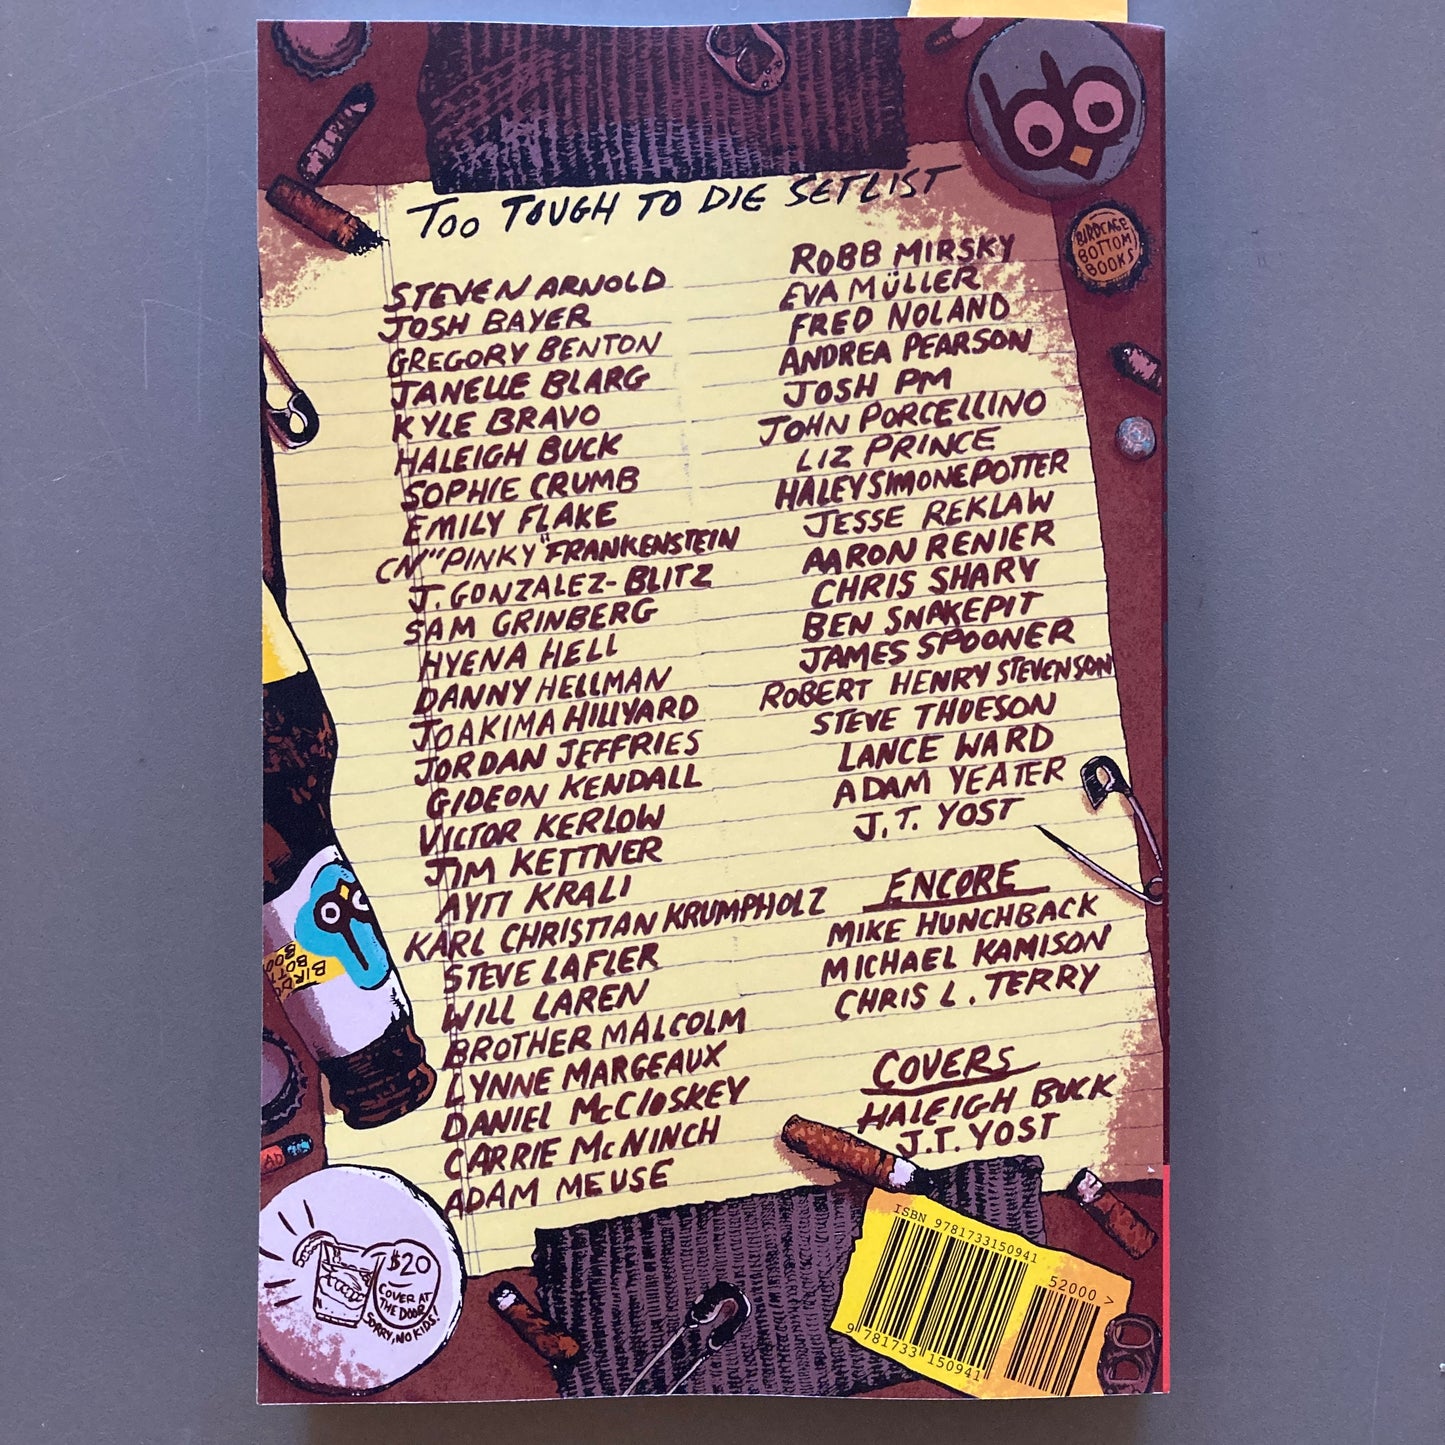 TOO TOUGH TO DIE SETLIST
STEVEN ARNOLD
JOSH BAYER
GREGORY BENTON
JANELLE BLARG
KYLE BRAVO
HALEIGH BUCK
SOPHIE CRUMB
EMILY FLAKE
CN "PINKY" FRANKENSTEIN
J. GONZALEZ-BLITZ
SAM GRINBERG
HYENA HELL
DANNY HELLMAN
JOAKIMA HILLYARD
JORDAN JEFFRIES
GIDEON KENDALL
VICTOR KERLOW
JIM KETTNER
AYTI KRALI
KARL CHRISTIAN KRUMPHOLZ
STEVE LAFLER
WILL LAREN
BROTHER MALCOLM
LYNNE MARGEAUX
DANIEL McCLOSKEY
CARRIE McNINCH
ADAM MEUSE
ROBB MIRSKY
EVA MÜLLER
FRED NOLAND
ANDREA PEARSON
JOSH PM
JOHN PORCELLINO
LIZ PRINCE
HALEY SIMONE POTTER
JESSE REKLAW
AARON RENIER
CHRIS SHARY
BEN SNAKEPIT
JAMES SPOONER
ROBERT HENRY STEVENSON
STEVE THUESON
LANCE WARD
ADAM YEATER
J.T. YOST
ENCORE
MIKE HUNCHBACK
MICHAEL KAMISON
CHRIS L. TERRY
COVERS
HALEIGH BUCK
J.T. YOST
BIRDCAGE
BOTTOM
BOOKS
$20
COVER AT
THE DOOR
SORRY, NO KIDS!
ISBN 9781733150941
52000 >
9 781733 150941